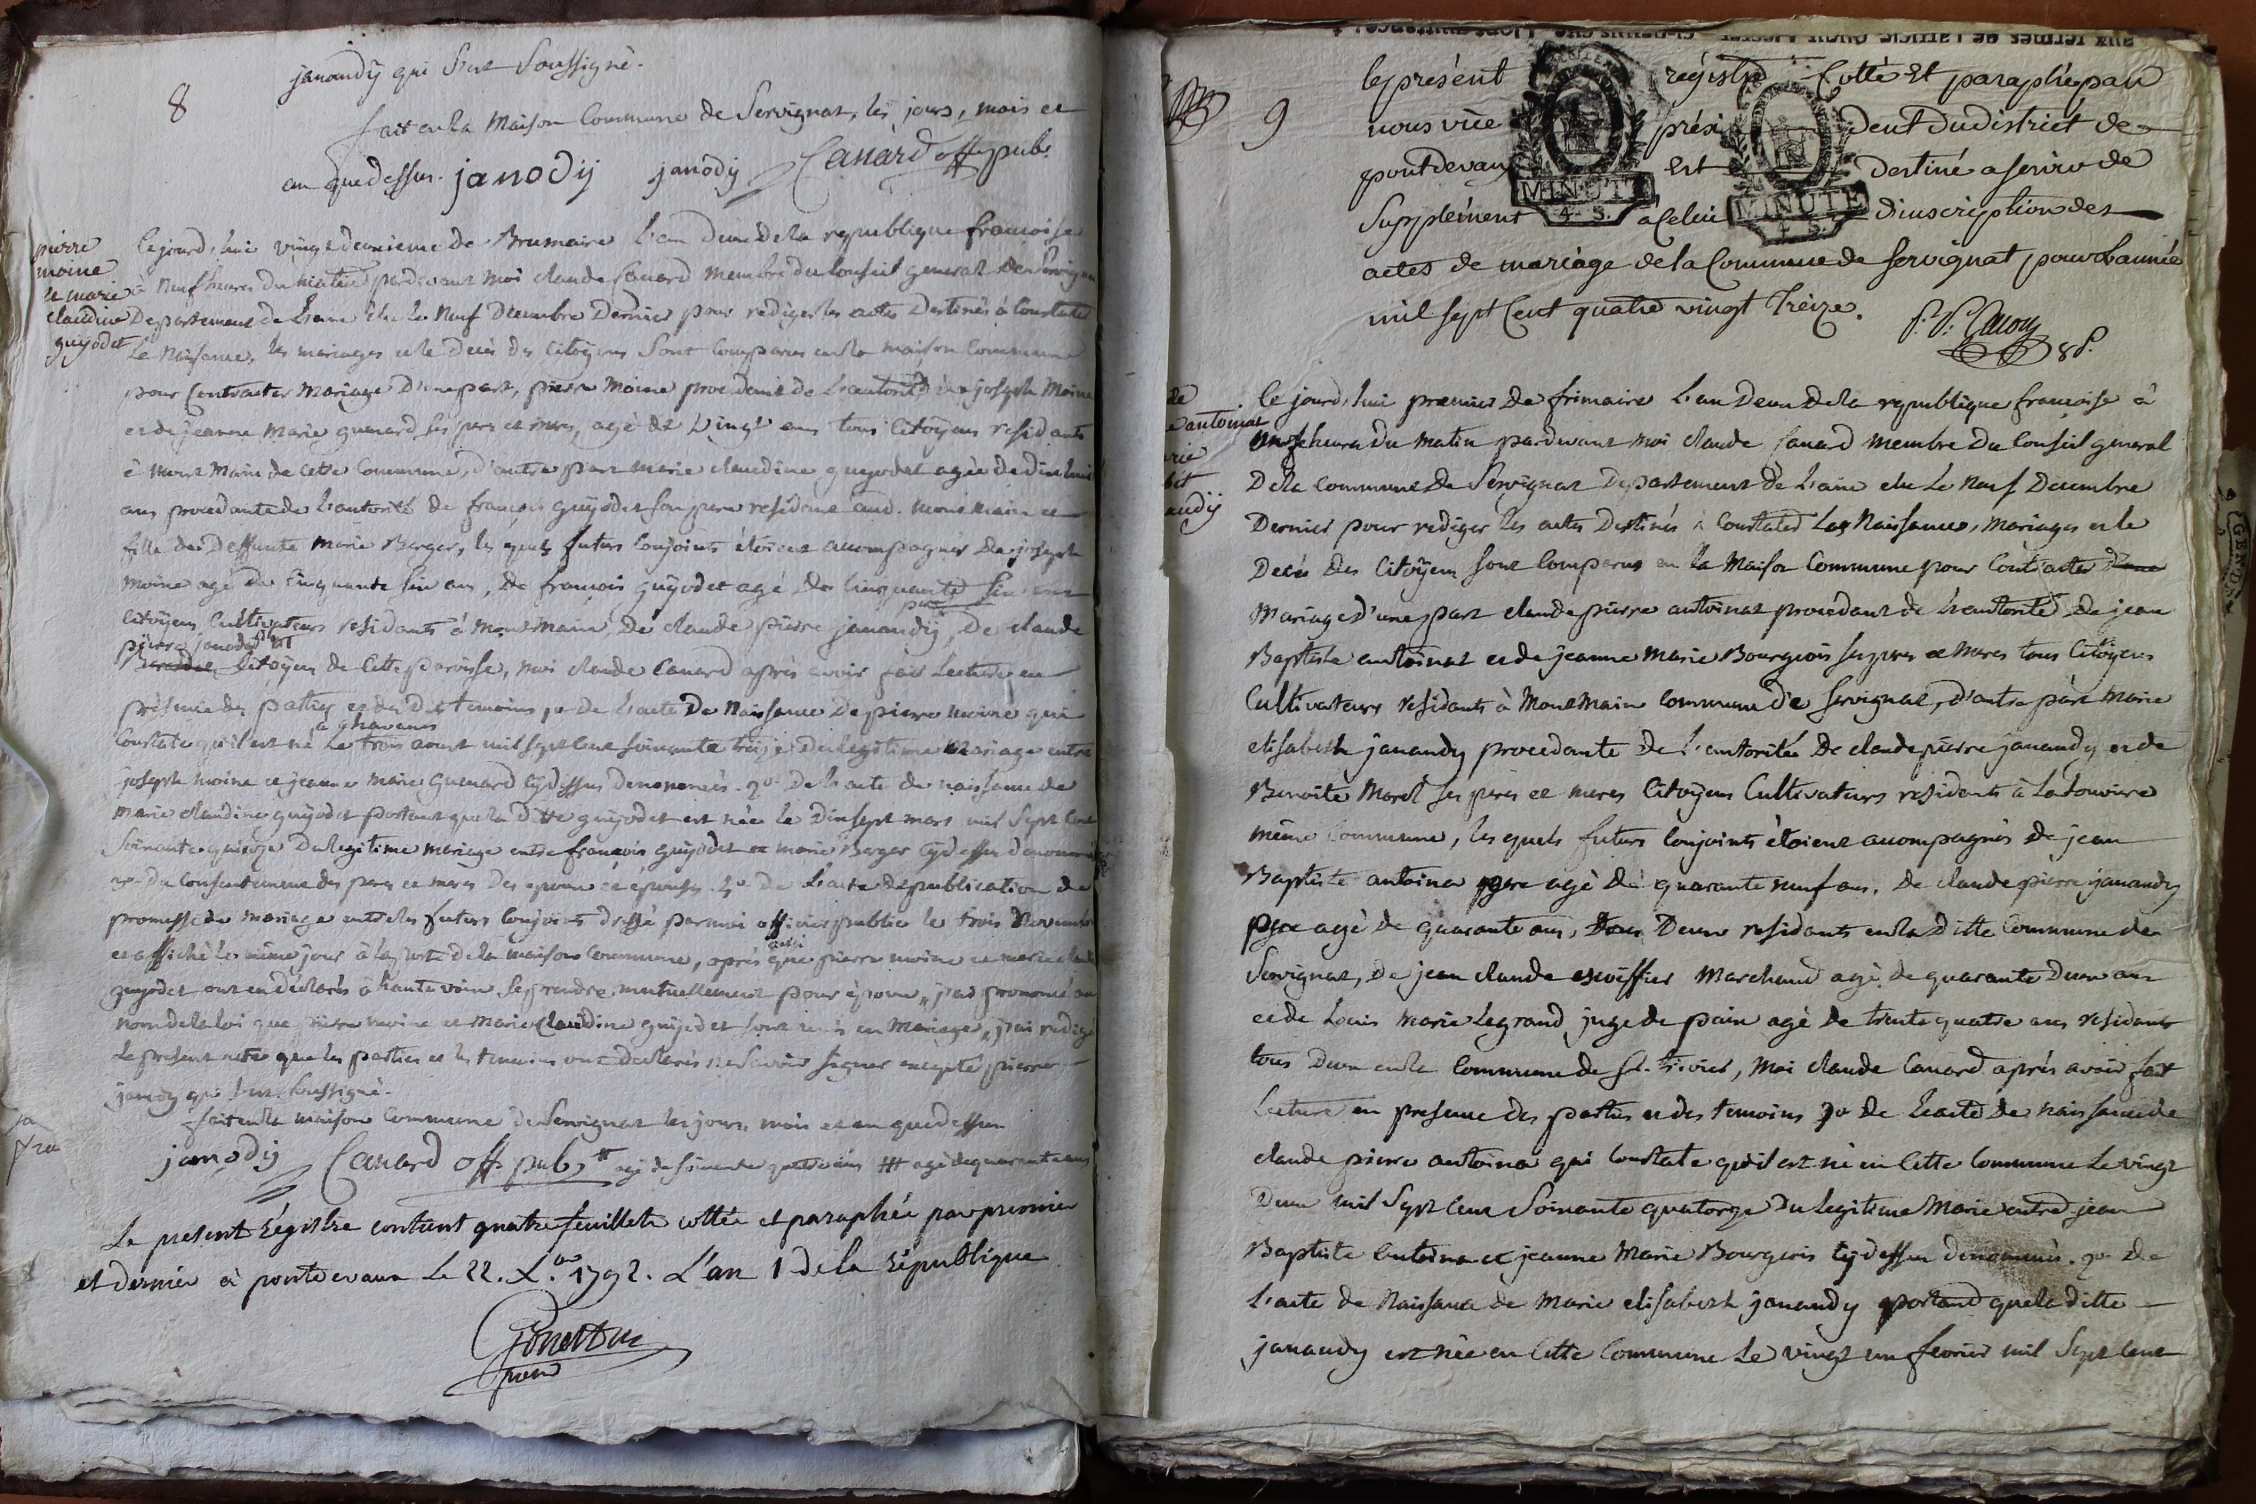 8
janaudij qui s'est soussigné.
fait en la maison commune de Servignat, les jours, mois et
an que dessus. janodij janodij Canard off. pub.
pierre
moine
et marie
claudine
guijodet
Cejourd'hui vingt deuxieme de Brumaire l'an deux de la republique françoise
à neuf heures du matin pardevant moi claude Canard membre du Conseil general de Servignat
Departement de L'ain élu le neuf Decembre dernier pour rediger les actes Destinés à Constater
Le Naissance, les mariages et le Decès des Citoyens sont comparus en la maison Commune
pour Contracter mariage D'une part, pierre moine procedant de L'autorité de joseph Moine
et de jeanne Marie guenard ses pere et mere, agé de vingt ans tous Citoyens residants
à mont main de cette Commune, d'autre part marie claudine guyodet agée de dix huit
ans procedante de L'autorité de françois guijodet son pere residant aud. mont main et
fille de Deffunte Marie Berger, les quels futurs Conjoints étoient accompagnés de joseph
moine agé de Cinquante six ans, de françois guijodet agé de Cinquante six ans
Citoyens Cultivateurs residants à mont main, De claude pierre janaudij, De claude
pierre janodij
Citoyens de Cette paroisse, moi claude Canard après avoir fait Lecture en
présence des parties et des Dts temoins 1o De L'acte De Naissance De pierre moine qui
à chavanes
Constate qu'il est né Le trois aout mil sept cent soixante treize du legitime mariage entre
joseph moine et jeanne marie Guenard cydessus denommés. 2o De L'acte de naissance de
marie claudine guijodet portant que la Ditte guijodet est née le dix sept mars mil sept cent
soixante quinze Du legitime mariage entre françois guijodet et marie Berger cydessus denommés
du Consentement des peres et meres des epoux et epouses. De L'acte de publication de
promesse de mariage entre les futurs Conjoints dressé par moi officier public le trois Novembre
et affiché le même jour à la porte de la maison Commune, après aussi que pierre moine et marie claudine
guijodet ont eu déclarés à haute voix se prendre mutuellement pour époux, j'ai prononcé au
nom de la loi que pierre moine et Marie Claudine guijodet sont unis en Mariage, j'ai redigé
Le present acte que les parties et les temoins ont declarés ne savoir signer excepté pierre
janody qui s'est soussigné.
fait en la maison Commune de Servignat les jours, mois et an que dessus
janodij Canard off. pub. agé de soixante quatre ans agé de quarante ans
Le present Régistre contient quatre feuillets cottés et paraphés par premier
et dernier à pontdevaux Le 22. Xbre 1792. L'an 1 de la République
9
le présent régistre Cotté Et paraphé par
nous vice président Du District de
pontdevaux Est Destiné a servir de
Supplément à celui d'inscription des
MINUTE
4. S.
MINUTE
4. S.
actes de mariage de la Commune de Servignat pour l'année
mil sept Cent quatre vingt Treize.
antoinat
Ce jourd'hui premier de frimaire l'an Deux de la republique françoise à
onze heures Du matin pardevant moi claude Canard membre du Conseil general
De la commune de Servignat Departement de L'ain elu Le neuf Decembre
Dernier pour rediger les actes Destinés à Constater Les Naissances, mariages et le
Decès des Citoyens sont Comparus en la Maison Commune pour Contracter
Mariage d'une part claude pierre antoinat procedant de L'autorité De jean
Baptiste antoinat et de jeanne Marie Bourgeois ses peres et Meres tous Citoyens
Cultivateurs residants à Mont Main Commune de Servignat, d'autre part Marie
elisabeth janaudy procedante De L'autorité De claude pierre janaudy et de
Benoite Morel ses peres et meres Citoyens Cultivateurs residants à Latouviere
même Commune, les quels futurs Conjoints étoient accompagnés de jean
Baptiste antoina pere agé de quarante neuf ans, De claude pierre janaudy
pere agé de quarante ans, Deux residants en la Ditte Commune de
Servignat, De jean claude escoiffier Marchand agé de quarante Deux ans
et de Louis Marie Legrand juge de paix agé de trente quatre ans residants
tous Deux en la Commune de St. trivier, Moi claude Canard aprés avoir fait
Lecture en presence des parties et des temoins 1o De L'acte de naissance de
claude pierre antoina qui Constate qu'il est né en Cette Commune Le vingt
Deux mil Sept Cent Soixante quatorze Du legitime Marie entre jean
Baptiste antoina et jeanne Marie Bourgeois cydessus denommés. 2o De
L'acte de Naissance de Marie elisabeth janaudy portant que la ditte
janaudy est née en Cette Commune Le vingt un fevrier mil Sept Cent